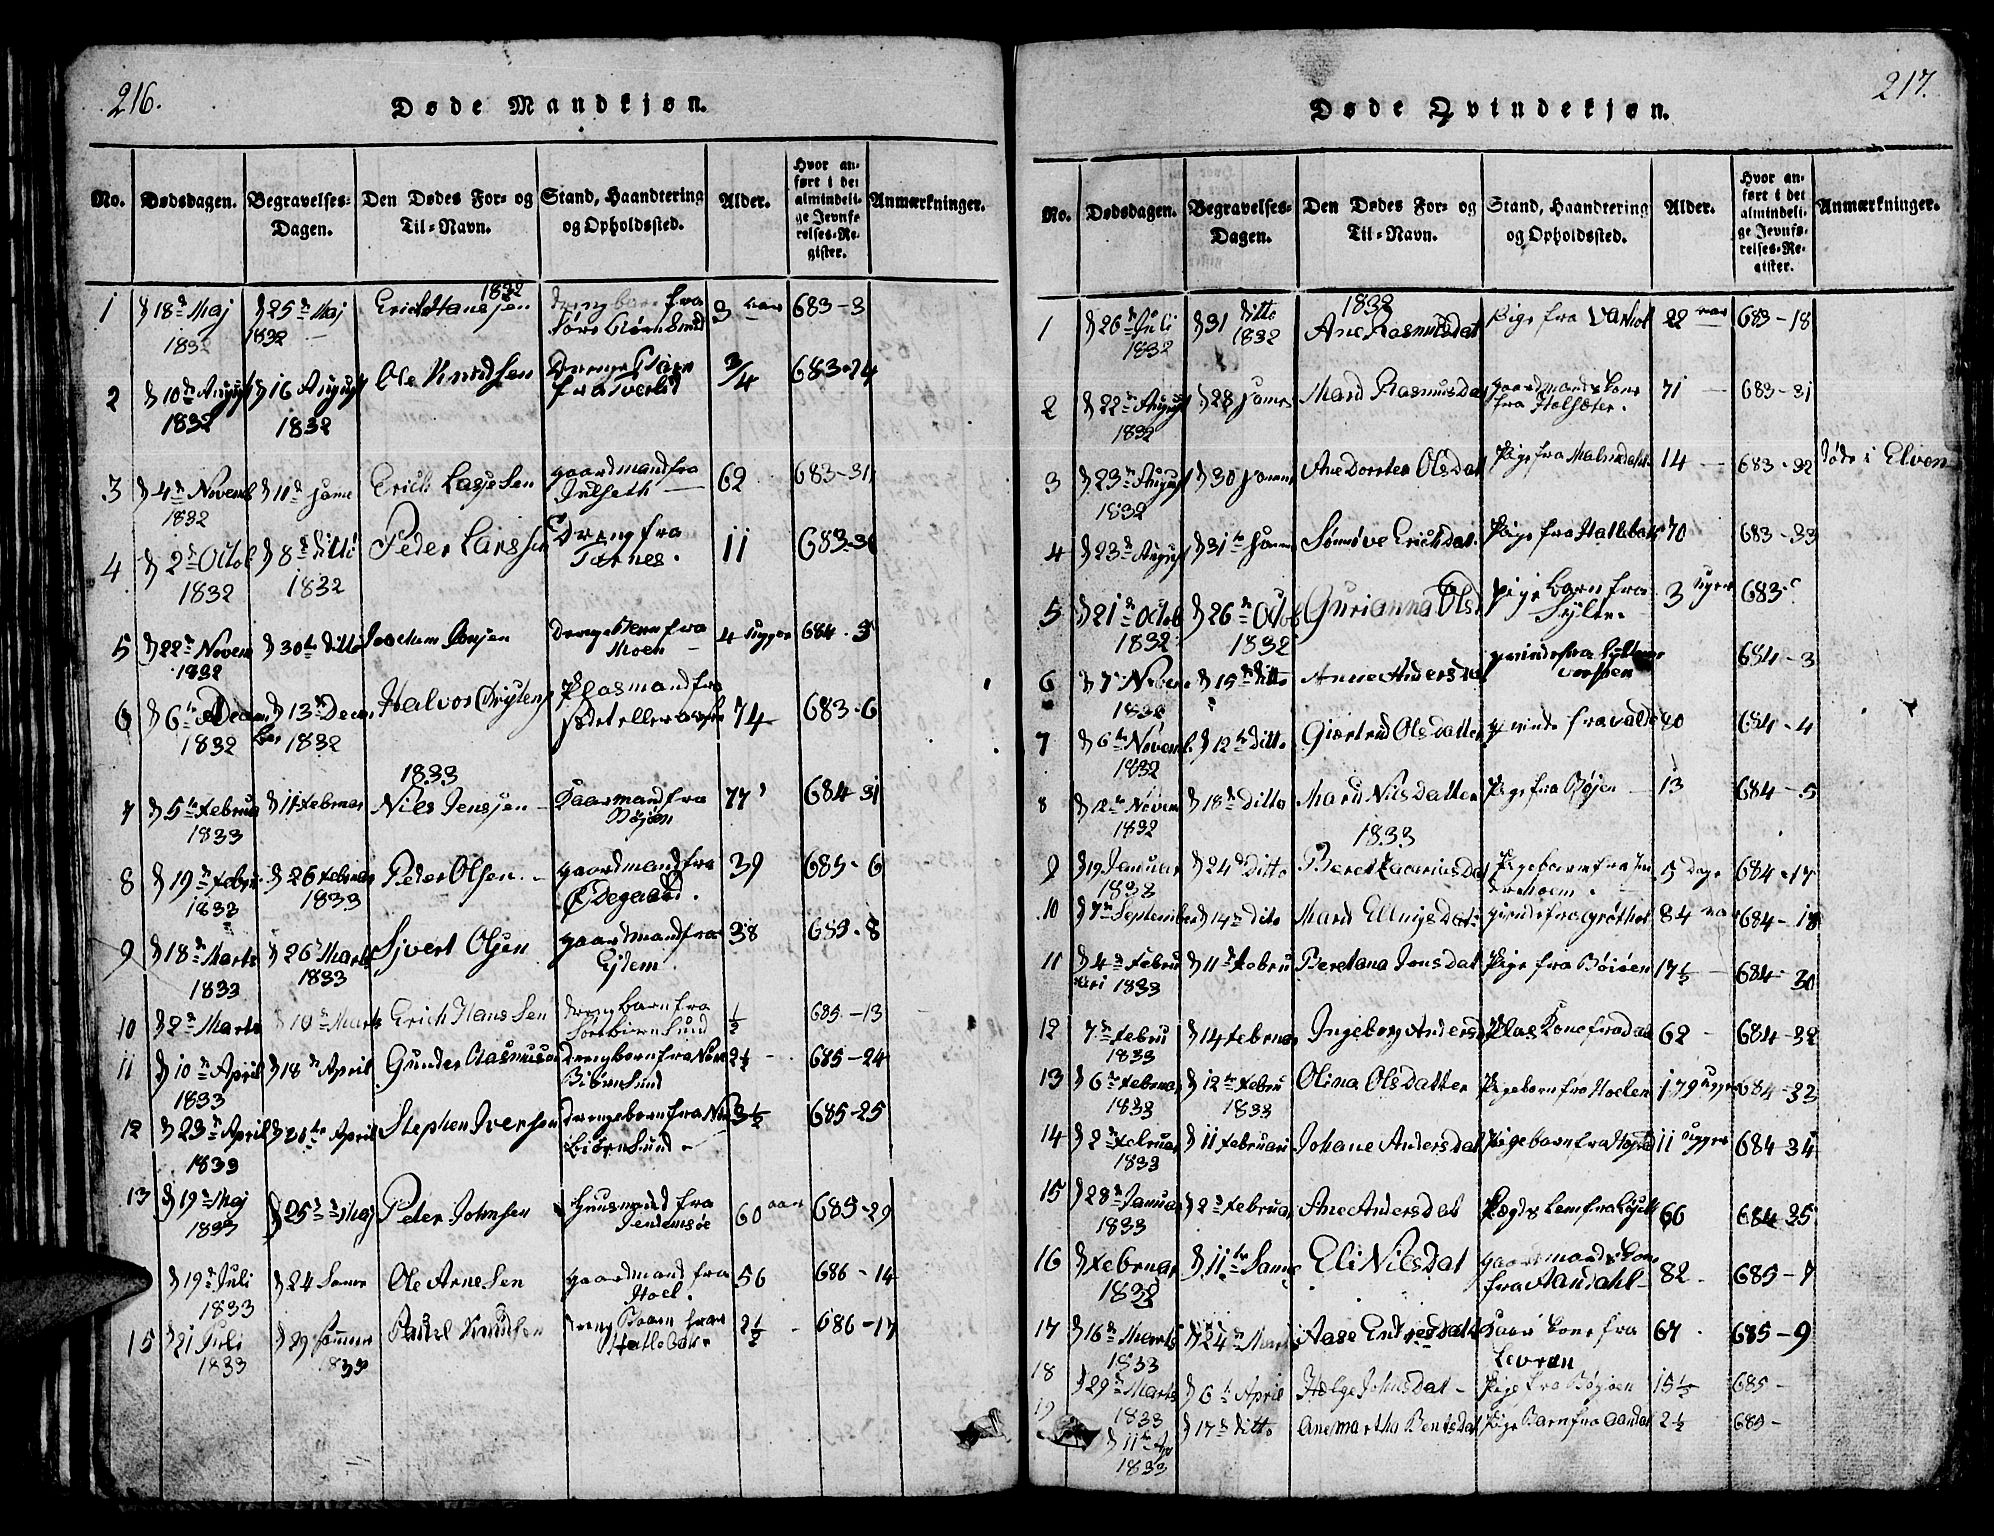 216.
Døde Mandkjøn.
No. Dødsdagen. Begravelses-Dagen. Den Dødes For- og Til-Navn. Stand, Haandtering og Opholdssted. Alder. Hvor anført i det almindelige Jevnførelses-Register. Anmærkninger.
1832
1 d 18de Maj 1832 d 25de Maj 1832 Erich Hansen fra 3 aar 683-3
2 d 10de August 1832 d 16 August 1832 Ole Knudsen Drenge Barn fra Tverlid 3/4 683-24
3 d 4de Novemb 1832 d 11de same Erich Lassesen gaardmand fra Julseth 62 683-31
4 d 2de Octob 1832 d 8de ditto 1832 Peder Larssen Dreng fra Tornes. 11 683-31
5 d 22de Novem 1832 d 30te ditto Joachum drenge Barn fra Moen 4 Ugger 684-5
6 d 6te Decem 1832 d 13de Decem ber 1832 Halvor Plasmand fra 74 683-6
1833
7 d 5te Februa 1833 d 11te Februar Niels Jenssen Kaarmand fra Bøjen 77 684-31
8 d 19de Febru 1833 d 26 Februar 1833 Peder Olsen. gaardmand fra Ødegaard. 39 685-6
9 d 18de Marts 1833 d 26de Marts 1833 Sjvert Olsen gaardmand fra Ejdem. 38 685-8
10 d 2de Marts d 10de Marts Erich Hanssen dreng barn fra Sund 1/2 685-13
11 d 10de April 1833 d 18de April Gunder Rasmusen dreng born fra Nor Biørnsund 2 1/2 685-24
12 d 23de April 1833 April Stephen Iversen drenge born fra Nor Biørnsund 3 1/2 685-25
13 d 19de Maj 1833 d 25de Maj Peter Johnsen Huusmand fra Jendemsøe 60 aar 685-29
d 19de Juli 1833 d 24 Same Ole Arnesen gaardmand fra Hoel. 56 686-14
15 d 21 Juli 1833 d 29 1833 Paul Knudsen dreng Baarn fra Hatlebak 2 1/2 686-17
217.
Døde Qvindekjøn.
No. Dødsdagen. Begravelses-Dagen. Den Dødes For- og Til-Navn. Stand, Haandtering og Opholdssted. Alder. Hvor anført i det almindelige Jevnførelses-Register. Anmærkninger.
1832
1 d 26de Juli 1832 d 31 ditto 1832 Ane Rasmusdat Pige fra 22 aar 683-18
2 d 22de August 1832 d 28 same Mard Rasmusdat gaardmands kone fra Holsæter. 71 683-31
3 d 23de August 1832 d 30 same Ane Dorster Olsdat Pige fra Malmedahl 14 683-32 døde i Elven
4 d 23de August d 31te same Sønnøve Erichdat. Pige fra Hatlebak 70 683-33
5 d 21de Octob 1832 d 26de Octob 1832 Gurianna Olsd Pige barn fra Sylte. 3 Uger 683
6 d 7de Novem d 15de ditto Anne Andersdat qvinde fra 684-3
7 d 6te Novemb. 1832 d 12te ditto Giertrud Olsdatter qvinde fra 684-4
8 d 12te Novem 1832 d 18de ditto Mard Nilsdatter Pige fra Bøjen 13 684-5
1833
9 d 19 Januar 1833 d 24de ditto Beret Pige barn fra 5 Dage 684-17
10 d 7de September d 14de dito Mard qvinde fra Grøthol 84 684-18
11 d 4de Febru ari 1833 d 11de Febru Beretana Jonsdat Pige fra Bøjøen 17 1/2 684-30
12 7de Febru 1833 d 14 Februar Ingeborg Andersd Plas Kone fra 62 684-32
13 d 6te Februar 1833 d 12te Febru 1833 Olina Olsdatter Pigeborn fra Hoelen Ugger 684-33
14 d 2de Februar 1833 d 11 Februari Johane Andersdat Pige barn fra 11 Ugger 684-34
15 d 28de Januar 1833 d 2de Februar Ane Andersdat Lægds Lem fra 66 684-35
16 d Februar 1833 d 11te Same Eli Nilsdat gaardmands kone fra Aandahl 82 685-7
17 d 16de Marts 1833 d 24de Marts Aase Kaar kone fra 67 685-9
18 d 29de Marts 1833 d 6te April Helge Johnsdat Pige fra Bøjoen 15 1/2 685-
19 d 11te Ap 1833 d 17de ditto Ane Martha Bentsdat Pige Barn fra Aandal 2 1/2 685-